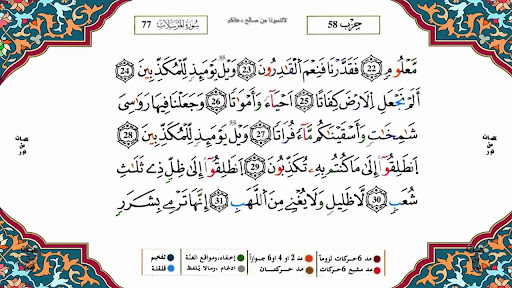 لاتنسونا من صالح دعائكم
حِزْب 58
سُورَةُ المُرْسَلَات 77
مَّعْلُومٍ 22 فَقَدَرْنَا فَنِعْمَ الْقَادِرُونَ 23 وَيْلٌ يَوْمَئِذٍ لِّلْمُكَذِّبِينَ 24
أَلَمْ نَجْعَلِ الْأَرْضَ كِفَاتًا 25 أَحْيَاءً وَأَمْوَاتًا 26 وَجَعَلْنَا فِيهَا رَوَاسِيَ
شَامِخَاتٍ وَأَسْقَيْنَاكُم مَّاءً فُرَاتًا 27 وَيْلٌ يَوْمَئِذٍ لِّلْمُكَذِّبِينَ 28
انطَلِقُوا إِلَىٰ مَا كُنتُم بِهِ تُكَذِّبُونَ 29 انطَلِقُوا إِلَىٰ ظِلٍّ ذِي ثَلَاثِ
شُعَبٍ 30 لَّا ظَلِيلٍ وَلَا يُغْنِي مِنَ اللَّهَبِ 31 إِنَّهَا تَرْمِي بِشَرَرٍ
نفحات من نور
نفحات من نور
مد 6 حركات لزوماً مد 2 أو 4 أو 6 جوازاً إخفاء، ومواقع الغنة تفخيم
مد مشبع 6 حركات مد حركتان ادغام ، ومالا يلفظ قلقلة